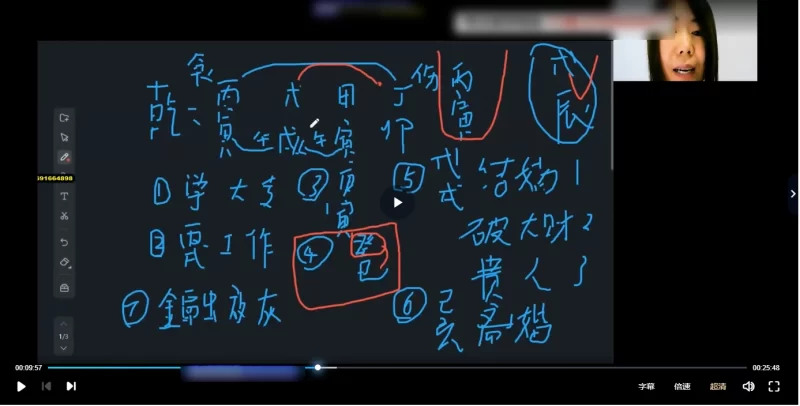 食 丙 戊 甲 丁 伤 丙寅 戊辰
乾: 寅 午 戌 午 寅 卯
① 学大专 ③ 丙寅 ⑤ 戊戌 结婚 1
591664898
破大财 2
② 电工作 ④ 癸巳 贵人 3
⑦ 金融出 灰 ⑥ 己亥 离婚
1/3
00:09:57
00:25:48
字幕 倍速 超清